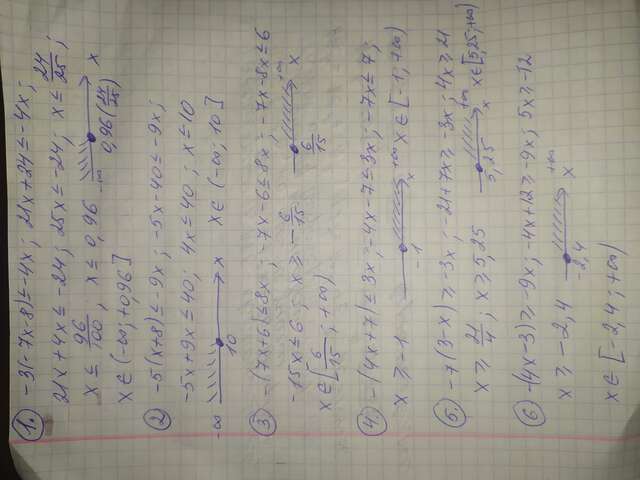 1. -3(-7x-8) ≤ -4x; 21x+24 ≤ -4x;
21x+4x ≤ -24; 25x ≤ -24; x ≤ 24/25;
x ≤ 96/100, x ≤ 0,96 -∞ 0,96 (24/25) x
x ∈ (-∞; +0,96]
2 -5(x+8) ≤ -9x; -5x-40 ≤ -9x;
-5x+9x ≤ 40; 4x ≤ 40; x ≤ 10
-∞ 10 x x ∈ (-∞; 10]
3 -(7x+6) ≤ 8x; -7x-6 ≤ 8x; -7x-8x ≤ 6
-15x ≤ 6 x ≥ -6/15 6/15 +∞ x
x ∈ [6/15; +∞)
4. -(4x+7) ≤ 3x; -4x-7 ≤ 3x; -7x ≤ 7;
x ≥ -1 -1 +∞ x x ∈ [-1; +∞)
5. -7(3-x) ≥ -3x; -21+7x ≥ -3x; 4x ≥ 21
x ≥ 21/4; x ≥ 5,25 5,25 +∞ x x ∈ [5,25; +∞)
6 -(4x-3) ≥ -9x; -4x+12 ≥ -9x; 5x ≥ -12
x ≥ -2,4 -2,4 +∞ x
x ∈ [-2,4; +∞)